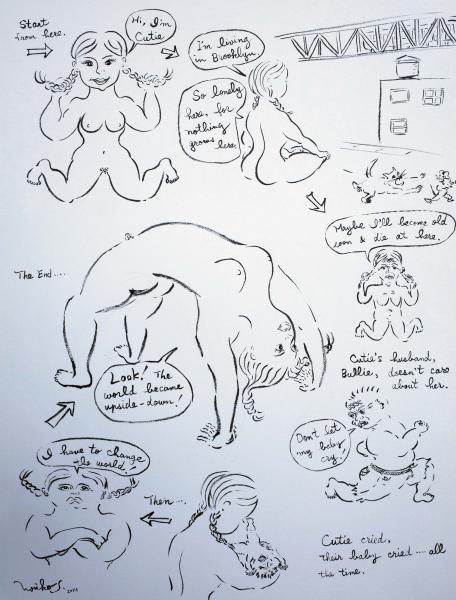 Start
from here.
Hi, I'm
Cutie
I'm living
in Brooklyn.
So lonely
here, for
nothing
grows here.
Maybe I'll become old
soon & die at here.
Cutie's husband,
Bullie, doesn't care
about her.
Don't let
my baby
cry!
Cutie cried,
their baby cried.... all
the time.
Then....
I have to change
the world!
Look! The
world became
upside-down!
The End....
Noriko S. 2011